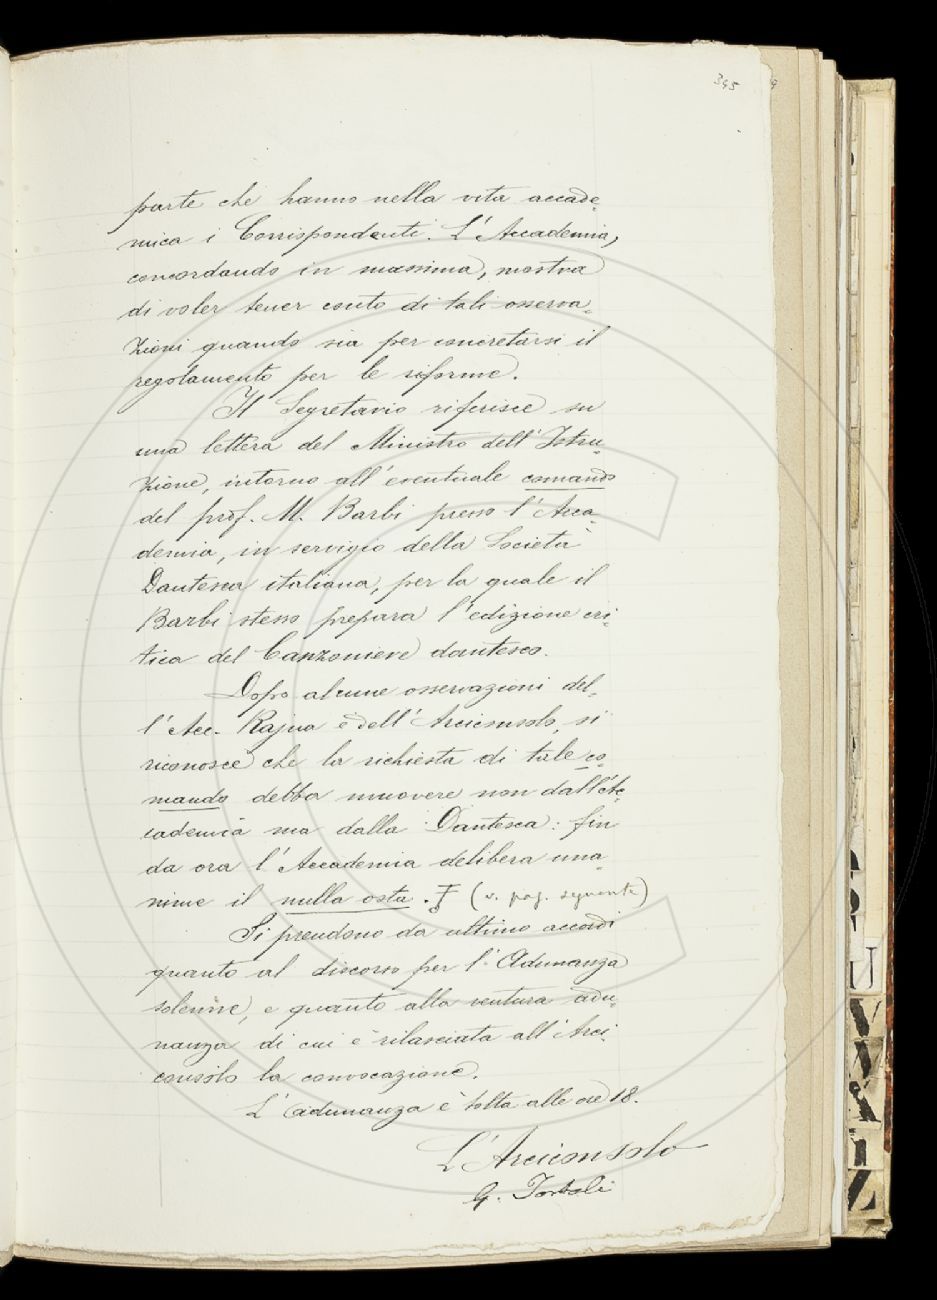 345
parte che hanno nella vita accade-
mica i Corrispondenti. L'Accademia,
concordando in massima, mostra
di voler tener conto di tali osserva-
zioni quando sia per concretarsi il
regolamento per le riforme.
Il Segretario riferisce su
una lettera del Ministro dell'Istru-
zione, intorno all'eventuale comando
del prof. M. Barbi presso l'Acca-
demia, in servigio della Società
Dantesca italiana, per la quale il
Barbi stesso prepara l'edizione cri-
tica del Canzoniere dantesco.
Dopo alcune osservazioni del-
l'Acc. Rajna e dell'Arciconsolo, si
riconosce che la richiesta di tale co-
mando debba muovere non dall'Ac-
cademia ma dalla Dantesca: fin
da ora l'Accademia delibera una-
nime il nulla osta. (v. pag. seguente)
Si prendono da ultimo accordi
quanto al discorso per l'Adunanza
solenne, e quanto alla ventura adu-
nanza di cui è rilasciata all'Arci-
consolo la convocazione.
L'adunanza è tolta alle ore 18.
L'Arciconsolo
G. Tortoli